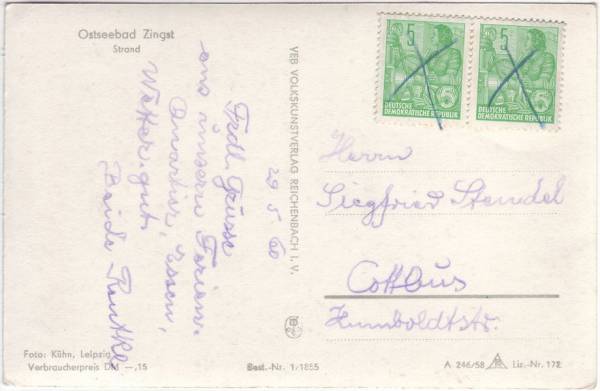 Ostseebad Zingst
Strand
29.5.60
Frdl. Grüsse
aus unsern Ferien.
Quartier, Essen,
Wetter gut.
Beide
VEB VOLKSKUNSTVERLAG REICHENBACH I. V.
5
5
DEUTSCHE
DEMOKRATISCHE REPUBLIK
5
5
DEUTSCHE
DEMOKRATISCHE REPUBLIK
Herrn
Siegfried Stendel
Cottbus
Humboldtstr.
Foto: Kühn, Leipzig
Verbraucherpreis DM —,15
Best.-Nr. 1/1855
A 246/58
Liz.-Nr. 172